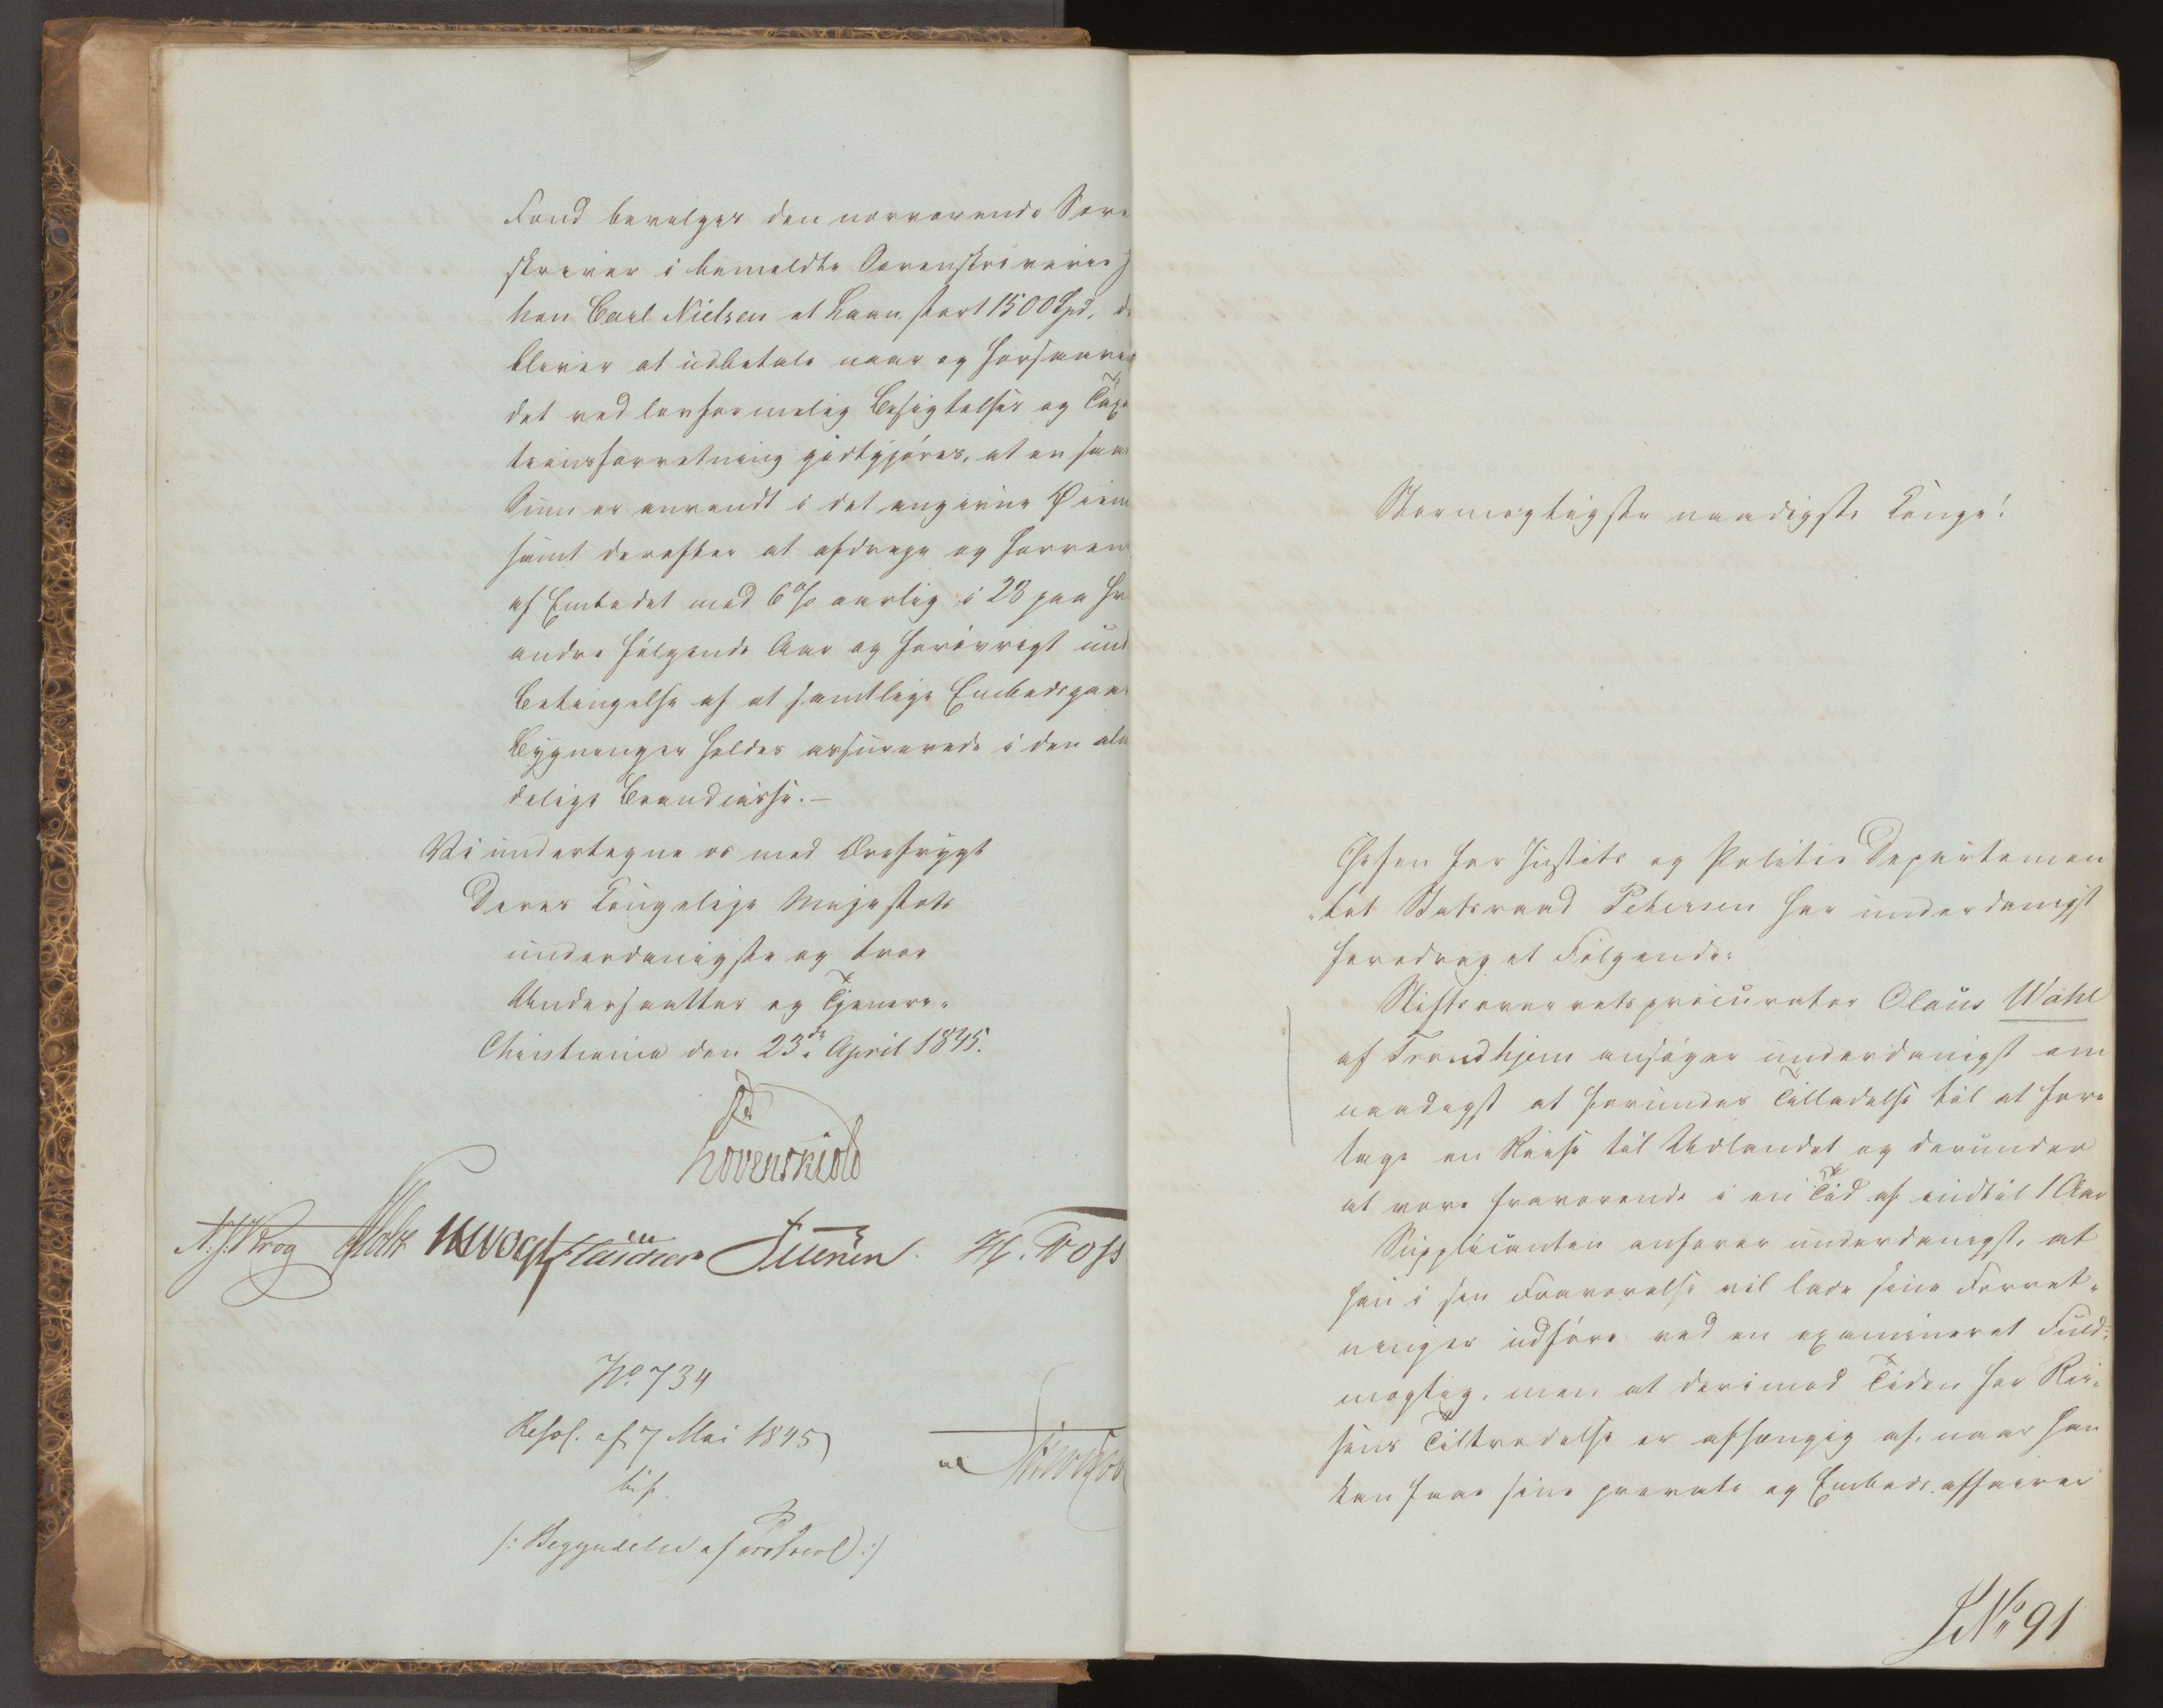 Fond bevilges den nærværende Soren
skriver i bemeldte Sorenskriverie J
han Carl Nielsen et Laan stort 1500 Spd, d
bliver at udbetale naar og forsaavi
det ved lovformelig Besigtelses og Taxa
tionsforretning godtgjöres, at en saa
Sum er anvendt i det angivne Øiem
samt derefter at afdrage og forren
af Embedet med 6% aarlig i 28 paa hv
andre fölgende Aar og forövrigt und
Betingelse af at samtlige Embedsgaa
Bygninger holdes assurerede i den alm
delige Brandcasse.—
Vi undertegne os med Ærefrygt
Deres Kongelige Majestæts
underdanigste og troe
Undersaatter og Tjenere.
Christiania den 23de April 1845.
Løvenskiold
N. J. Krog Holst JHVogt Fleischer Petersen H. Foss
No. 734
Resol. af 7 Mai 1845
/: Begyndelse af Protocol :/
Stormægtigste naadigste Konge!
Chefen for Justits og Politie Departemen
-tet Statsraad Petersen har underdanigst
foredraget Fölgende:
Stiftsoverretsprocurator Olaus Wahl
af Trondhjem ansöger underdanigst om
naadigst at forundes Tilladelse til at fore
tage en Reise til Udlandet og derunder
at være fraværende i en Tid af indtil 1 Aar
Supplicanten anfører underdanigst, at
han i sin Fraværelse vil lade sine Forret-
ninger udföre ved en examineret Fuld-
mægtig, men at derimod Tiden for Rei-
sens Tiltrædelse er afhængig af, naar han
kan faae sine private og Embeds affairer
JNo 91